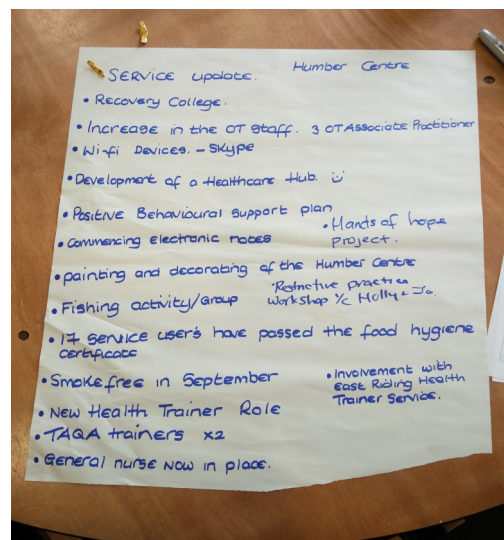 SERVICE update. Humber Centre
• Recovery College.
• Increase in the OT Staff. 3 OT Associate Practitioner
• Wi-fi Devices. - Skype
• Development of a Healthcare Hub.
• Positive Behavioural support plan
• Hands of hope
project.
• Commencing electronic notes
• painting and decorating of the Humber Centre
• Fishing activity/Group
Restrictive practice
Workshop Y/C Holly + Jo.
• 17 Service user's have passed the food hygiene
certificate
• Smokefree in September
• Involvement with
East Riding Health
Trainer Service.
• New Health Trainer Role
• TAQA trainers x2
• General nurse now in place.